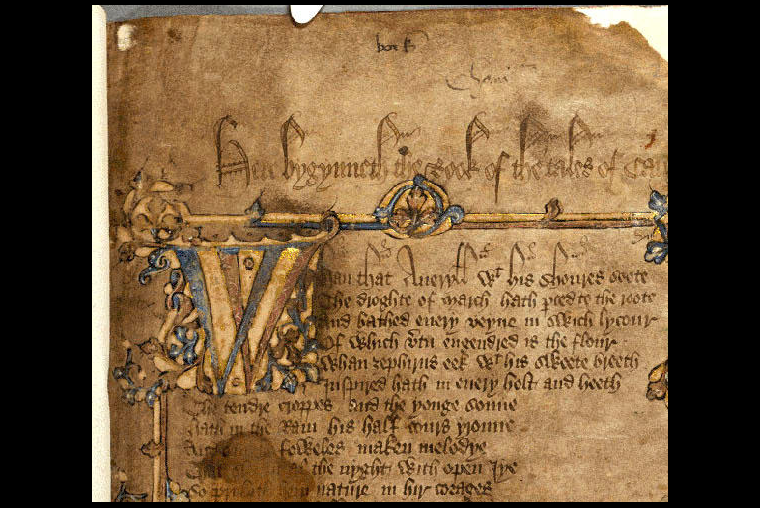 Here bygynneth the Book of the tales of Cau
Whan that Aueryll wt his shoures soote
The droghte of march hath pced to the roote
And bathed euery veyne in swich lycour
Of which vtu engendred is the flour
Whan zephirus eek wt his sweete breeth
Inspired hath in euery holt and heeth
The tendre croppes and the yonge sonne
hath in the Ram his half cours yronne
foweles maken melodye
the nyght with open Iye
So hem nature in hir corages